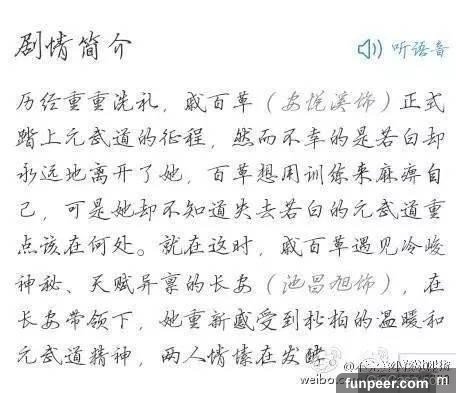 剧情简介
听语音
历经重重洗礼，戚百草（安悦溪饰）正式
踏上元武道的征程，然而不幸的是若白却
永远地离开了她，百草想用训练来麻痹自
己，可是她却不知道失去若白的元武道重
点该在何处。就在这时，戚百草遇见冷峻
神秘、天赋异禀的长安（池昌旭饰），在
长安带领下，她重新感受到松柏的温暖和
元武道精神，两人情愫在发酵。
funpeer.com